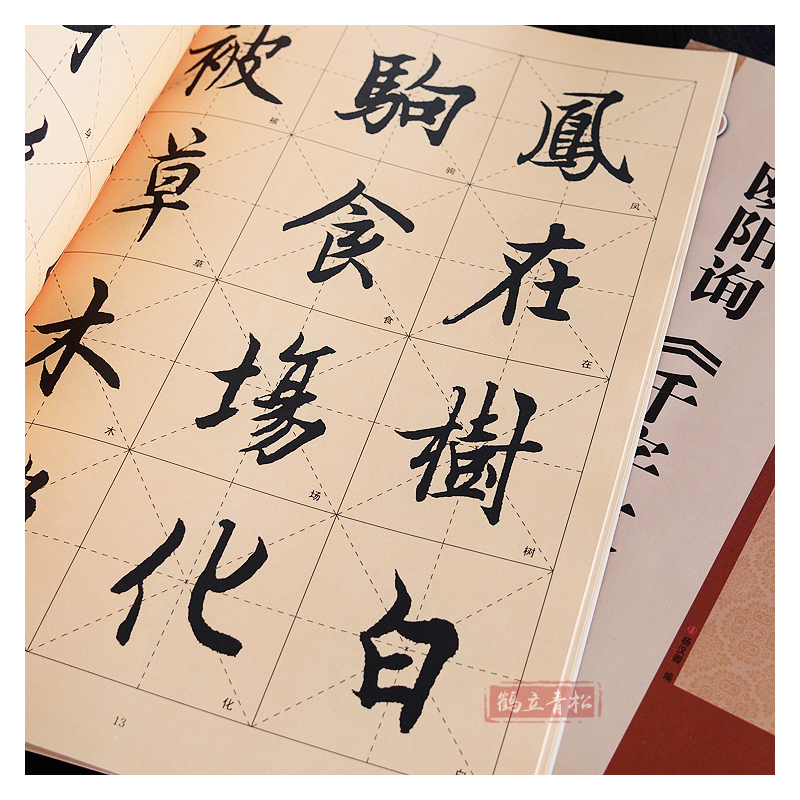 鳳在樹白
凤
在
树
駒食場化
驹
食
场
化
被草木
被
草
木
13
欧阳询
《千字文
杨汉卿 编
鹤立青松